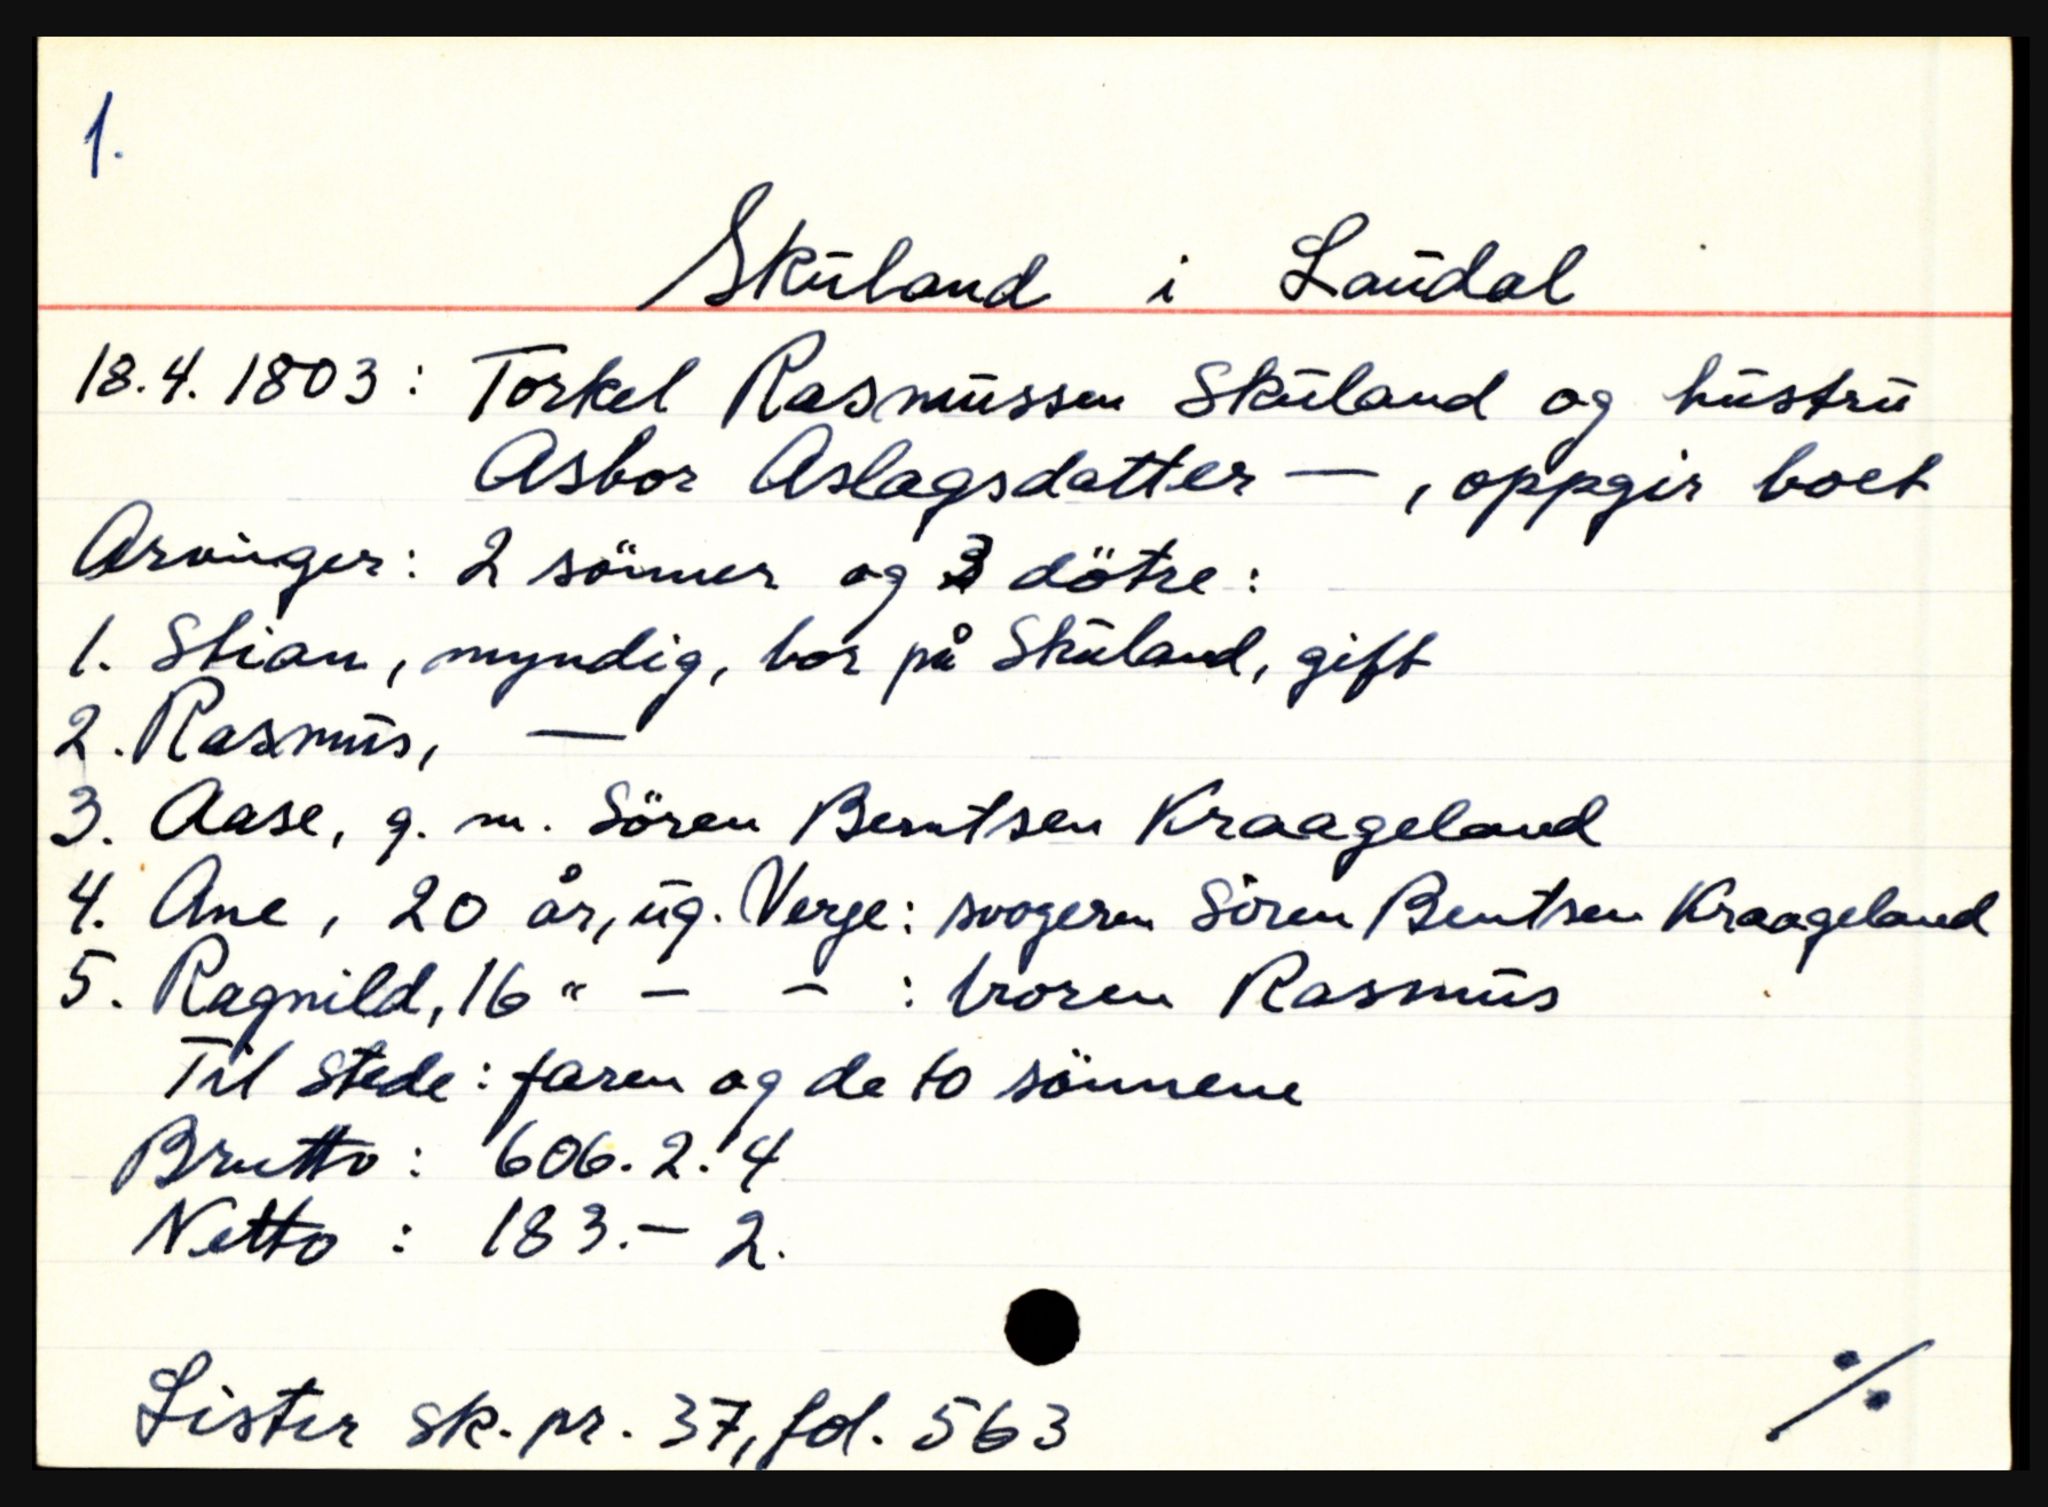 1.
Skuland i Laudal
18.4.1803: Torkel Rasmussen Skuland og hustru
Asbor Aslagsdatter —, oppgir boet
Arvinger: 2 sönner og 3 dötre:
1. Stian, myndig, bor på Skuland, gift
2. Rasmus, —
3. Aase, g. m. Sören Berntsen Kraageland
4. Ane, 20 år, ug. Verge: svogeren Sören Bentsen Kraageland
5. Ragnild, 16 " – – : broren Rasmus
Til stede: faren og de to sönnene
Brutto: 606.2.4
Netto: 183.– 2.
Lister sk. pr. 37, fol. 563
./.